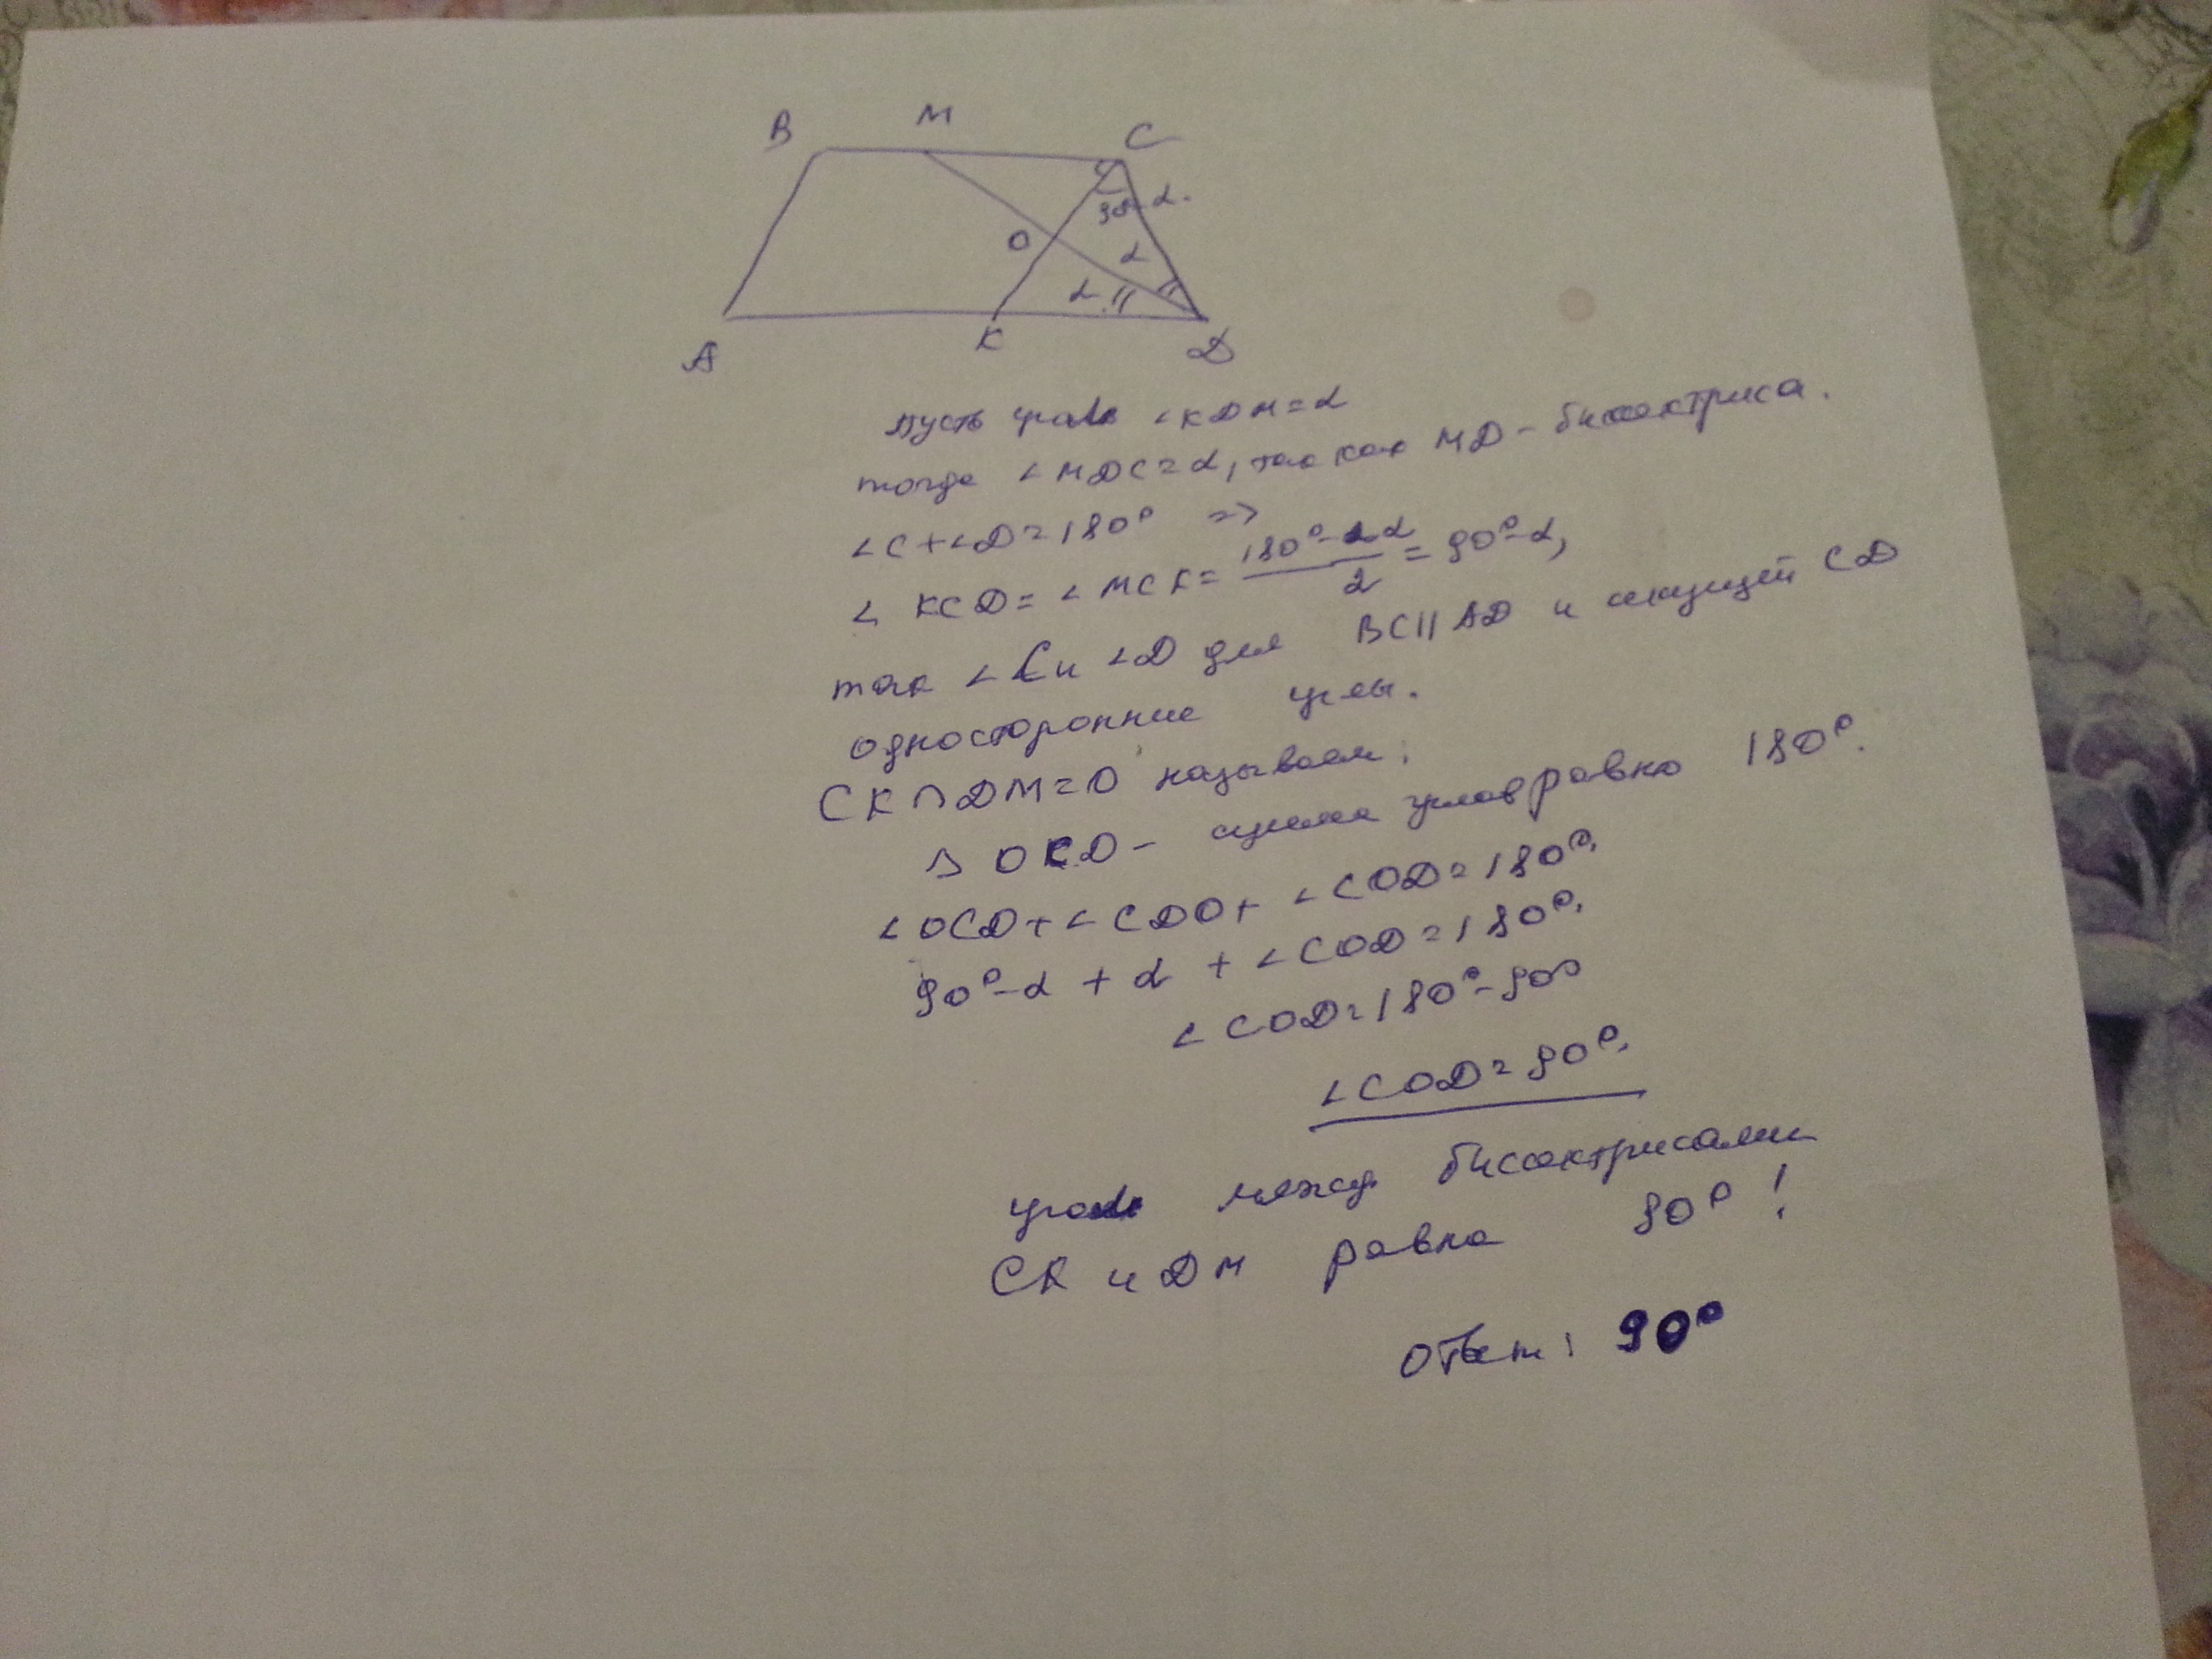 B M C
90°-α.
O α
α
A K D
пусть угол ∠KDM=α
тогда ∠MDC=α, так как MD - биссектриса.
∠C+∠D=180° =>
∠KCD=∠MCK= (180°-2α)/2 = 90°-α,
так ∠C и ∠D для BC||AD и секущей CD
односторонние углы.
CK∩DM=O называем.
Δ OCD - сумма углов равно 180°.
∠OCD+∠CDO+∠COD=180°.
90°-α+α+∠COD=180°.
∠COD=180°-90°
∠COD=90°.
угол между биссектрисами
CK и DM равно 90°!
Ответ: 90°